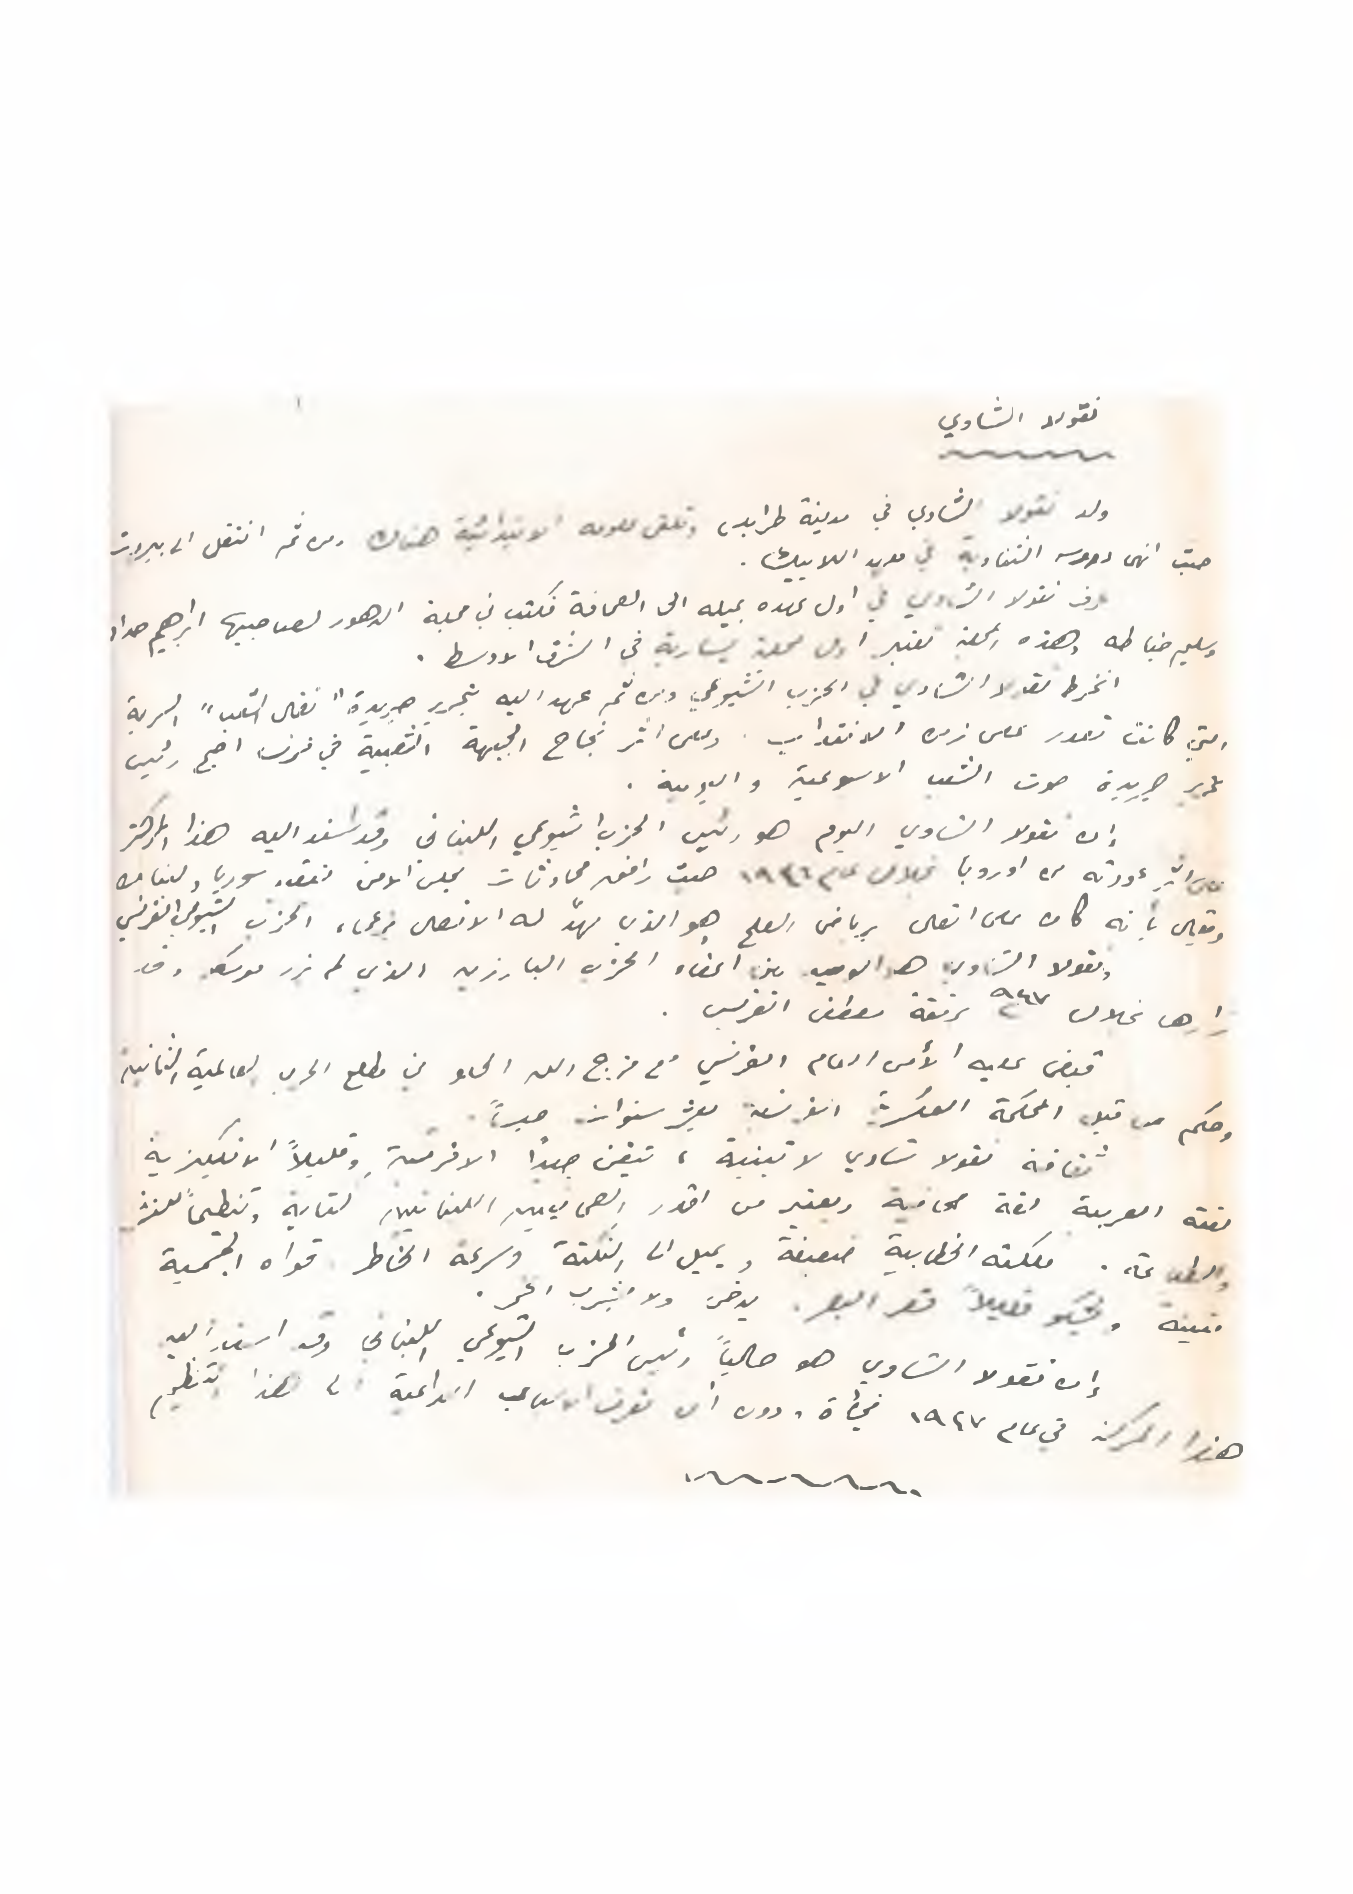 نقولا الشاوي
ولد نقولا الشاوي في مدينة طرابلس وتلقى علومه الابتدائية هناك ومن ثم انتقل الى بيروت
حيث انهى دروسه الثانوية في معهد اللاييك .
عرف نقولا الشاوي في اول عهده بميله الى الصحافة فكتب في مجلة الدهور لصاحبيها ابراهيم حداد
وسليم خياطه وهذه المجلة تعتبر اول مجلة يسارية في الشرق الاوسط .
انخرط نقولا الشاوي في الحزب الشيوعي ومن ثم عهد اليه بتحرير جريدة " نضال الشعب " السرية
التي كانت تصدر على زمن الانتداب . وعلى اثر نجاح الجبهة الشعبية في فرنسا اصبح رئيس
تحرير جريدة صوت الشعب الاسبوعية و اليومية .
إن نقولا الشاوي اليوم هو رئيس الحزب الشيوعي اللبناني وقد اسند اليه هذا المركز
على اثر عودته من اوروبا خلال عام ١٩٤٦ حيث رافق محادثات مجلس الامن سوريا ولبنان
ويقال بأنه كان على اتصال برياض الصلح هو الذي مهّد له الاتصال بزعماء الحزب الشيوعي الفرنسي
ونقولا الشاوي هو الوحيد بين اعضاء الحزب البارزين الذي لم يزر موسكو وقد
زارها خلال ٩٤٧ برفقة .
قبض عليه الأمن العام الفرنسي مع فرج الله الحلو في مطلع الحرب العالمية الثانية
وحكم من قبل المحكمة العسكرية الفرنسية بعشر سنوات .
ثقافة نقولا شاوي لاتينية ، يتقن جيداً الافرنسية وقليلاً الانكليزية
لغته العربية لغة صحافية ويعتبر من اقدر الصحافيين اللبنانيين كتابة وتنظيماً للنشر
والطباعة . ملكته الخطابية ضعيفة ويميل الى النكتة وسرعة الخاطر قواه الجسمية
متينة ويشكو قليلاً قصر البصر . يدخن ولا يشرب الخمر .
إن نقولا الشاوي هو حالياً رئيس الحزب الشيوعي اللبناني وقد اسند اليه
هذا المركز في عام ١٩٤٧ فجأة ، دون أن تعرف الاسباب الداعية الى هذا التنظيم